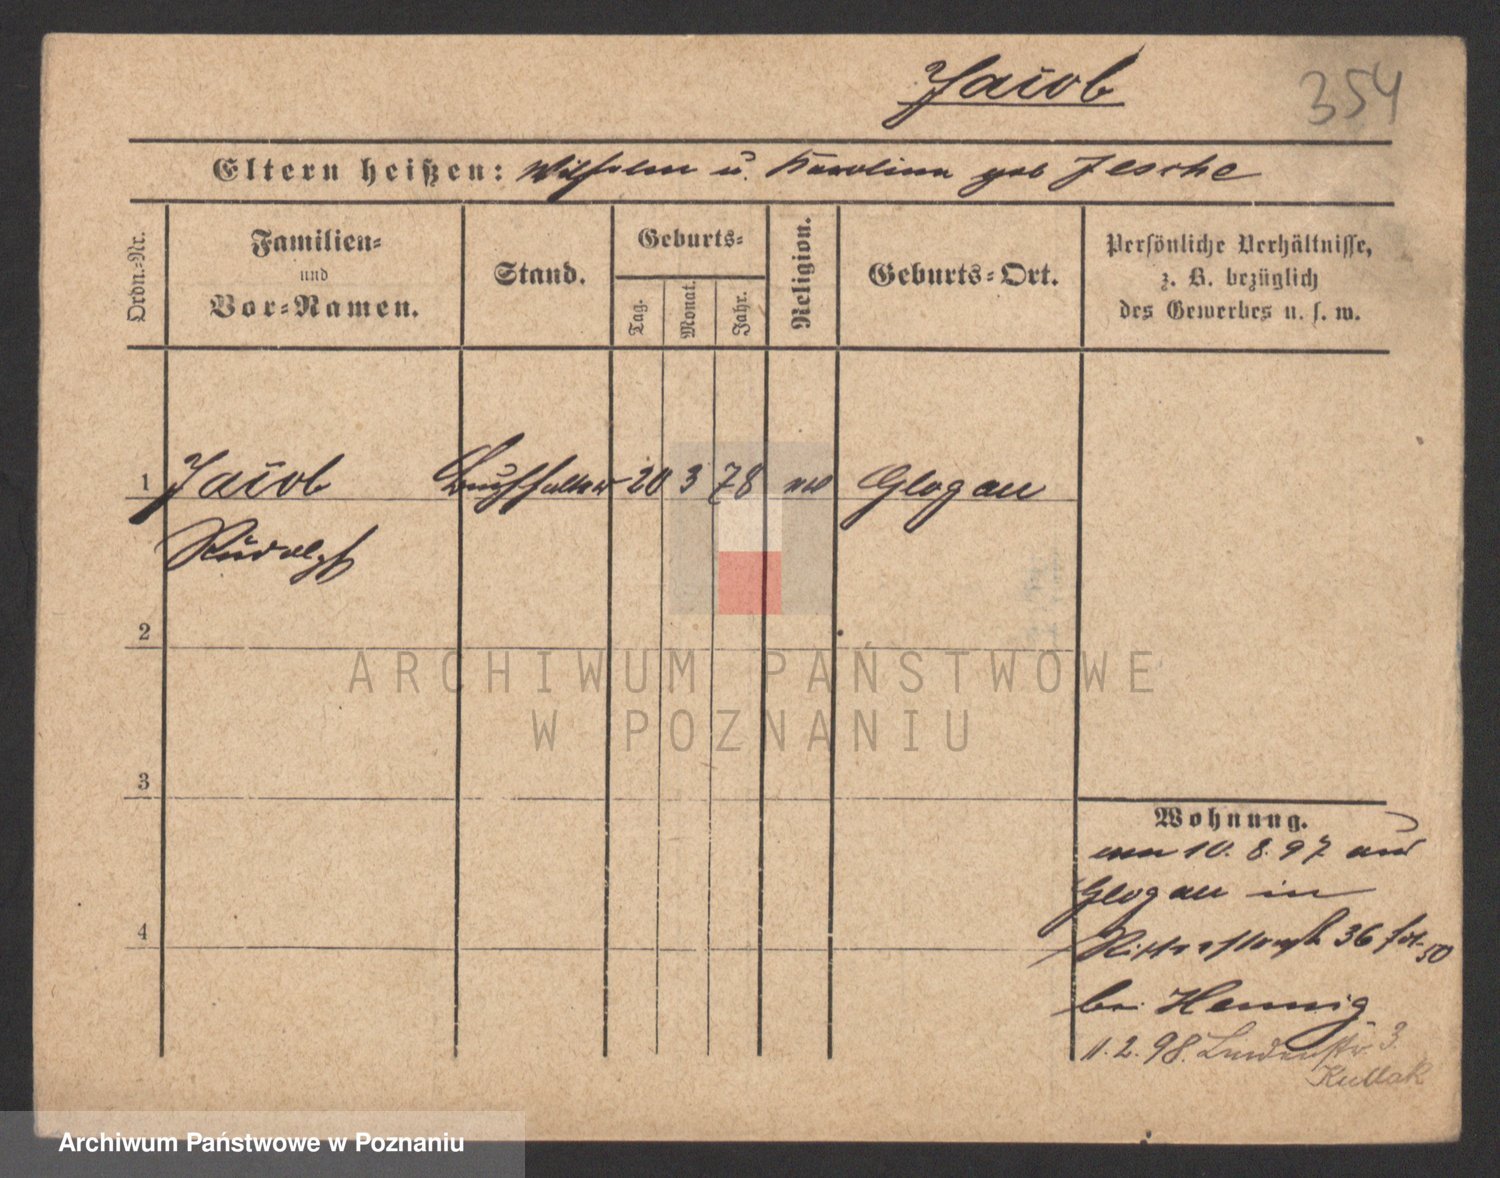 Jacob
354
Eltern heißen: Wilhelm u. Karoline geb Jesche
Ordn.-Nr.
Familien-
und
Vor-Namen.
Stand.
Geburts-
Tag.
Monat.
Jahr.
Religion.
Geburts-Ort.
Persönliche Verhältnisse,
z. B. bezüglich
des Gewerbes u. s. w.
1 Jacob Buchhalter 20 3 78 ev Glogau
Rudolph
2
3
4
Wohnung.
10. 8. 97 aus
Glogau in
36
bei Hennig
11. 2. 98. Lindenstr 3.
Kullak
ARCHIWUM PAŃSTWOWE
W POZNANIU
Archiwum Państwowe w Poznaniu